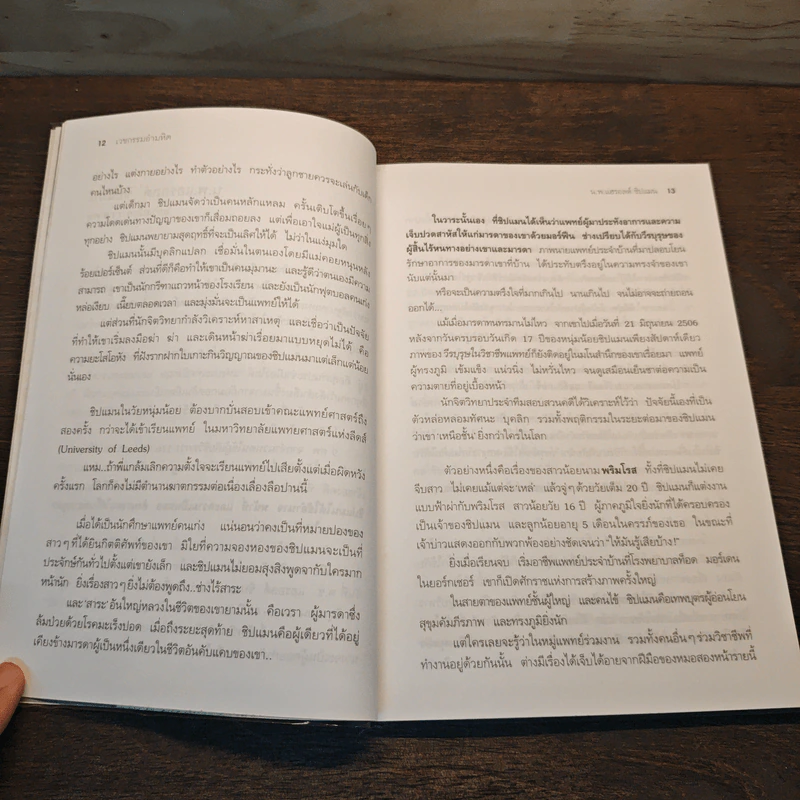 12 เวชกรรมอำมหิต
อย่างไร แต่งกายอย่างไร ทำตัวอย่างไร กระทั่งว่าลูกชายควรจะเล่นกับเด็ก
คนไหนบ้าง
แต่เด็กมา ชิปแมนจัดว่าเป็นคนหลักแหลม ครั้นเติบโตขึ้นเรื่อยๆ
ความโดดเด่นทางปัญญาของเขาก็เสื่อมถอยลง แต่เพื่อเอาใจแม่ผู้เป็นทุกสิ่ง
ทุกอย่าง ชิปแมนพยายามสุดฤทธิ์ที่จะเป็นเลิศให้ได้ ไม่ว่าในแง่มุมใด
ชิปแมนนั้นมีบุคลิกแปลก เชื่อมั่นในตนเองโดยมีแม่คอยหนุนหลัง
ร้อยเปอร์เซ็นต์ ส่วนที่ดีก็คือทำให้เขาเป็นคนมุมานะ และรู้ดีว่าตนเองมีความ
สามารถ เขาเป็นนักกรีฑาแถวหน้าของโรงเรียน และยังเป็นนักฟุตบอลคนเก่ง
หล่อเรียบ เนี้ยบตลอดเวลา และมุ่งมั่นจะเป็นแพทย์ให้ได้
แต่ส่วนที่นักจิตวิทยากำลังวิเคราะห์หาสาเหตุ และเชื่อว่าเป็นปัจจัย
ที่ทำให้เขาเริ่มลงมือฆ่า ฆ่า และเดินหน้าฆ่าเรื่อยมาแบบหยุดไม่ได้ คือ
ความยะโสโอหัง ที่ฝังรากฝากใบเกาะกินวิญญาณของชิปแมนมาแต่เล็กแต่น้อย
นั่นเอง
ชิปแมนในวัยหนุ่มน้อย ต้องบากบั่นสอบเข้าคณะแพทย์ศาสตร์ถึง
สองครั้ง กว่าจะได้เข้าเรียนแพทย์ ในมหาวิทยาลัยแพทยศาสตร์แห่งลีดส์
(University of Leeds)
แหม..ถ้าพี่แกล้มเลิกความตั้งใจจะเรียนแพทย์ไปเสียตั้งแต่เมื่อผิดหวัง
ครั้งแรก โลกก็คงไม่มีตำนานฆาตกรรมต่อเนื่องเลื่องลือปานนี้
เมื่อได้เป็นนักศึกษาแพทย์คนเก่ง แน่นอนว่าคงเป็นที่หมายปองของ
สาวๆที่ได้ยินกิตติศัพท์ของเขา มิใยที่ความจองหองของชิปแมนจะเป็นที่
ประจักษ์กันทั่วไปตั้งแต่เขายังเล็ก และชิปแมนไม่ยอมสุงสิงพูดจากับใครมาก
หน้านัก ยิ่งเรื่องสาวๆยิ่งไม่ต้องพูดถึง..ช่างไร้สาระ
และ'สาระ'อันใหญ่หลวงในชีวิตของเขายามนั้น คือเวรา ผู้มารดาซึ่ง
ล้มป่วยด้วยโรคมะเร็งปอด เมื่อถึงระยะสุดท้าย ชิปแมนคือผู้เดียวที่ได้อยู่
เคียงข้างมารดาผู้เป็นหนึ่งเดียวในชีวิตอันคับแคบของเขา..
น.พ.แฮรอลด์ ชิปแมน 13
ในวาระนั้นเอง ที่ชิปแมนได้เห็นว่าแพทย์ผู้มาประทังอาการและความ
เจ็บปวดสาหัสให้แก่มารดาของเขาด้วยมอร์ฟีน ช่างเปรียบได้กับวีรบุรุษของ
ผู้สิ้นไร้หนทางอย่างเขาและมารดา ภาพนายแพทย์ประจำบ้านที่มาปลอบโยน
รักษาอาการของมารดาเขาที่บ้าน ได้ประทับตรึงอยู่ในความทรงจำของเขา
นับแต่นั้นมา
หรือจะเป็นความตรึงใจที่มากเกินไป นานเกินไป จนไม่อาจจะถ่ายถอน
ออกได้...
แม้เมื่อมารดาทนทรมานไม่ไหว จากเขาไปเมื่อวันที่ 21 มิถุนายน 2506
หลังจากวันครบรอบวันเกิด 17 ปีของหนุ่มน้อยชิปแมนเพียงสัปดาห์เดียว
ภาพของวีรบุรุษในวิชาชีพแพทย์ก็ยังติดอยู่ในมโนสำนึกของเขาเรื่อยมา แพทย์
ผู้ทรงภูมิ เข้มแข็ง แน่วนิ่ง ไม่หวั่นไหว จนดูเสมือนเย็นชาต่อความเป็น
ความตายที่อยู่เบื้องหน้า
นักจิตวิทยาประจำทีมสอบสวนคดีได้วิเคราะห์ไว้ว่า ปัจจัยนี้เองที่เป็น
ตัวหล่อหลอมทัศนะ บุคลิก รวมทั้งพฤติกรรมในระยะต่อมาของชิปแมน
ว่าเขา'เหนือชั้น'ยิ่งกว่าใครในโลก
ตัวอย่างหนึ่งคือเรื่องของสาวน้อยนาม พริมโรส ทั้งที่ชิปแมนไม่เคย
จีบสาว ไม่เคยแม้แต่จะ'เหล่' แล้วจู่ๆด้วยวัยเต็ม 20 ปี ชิปแมนก็แต่งงาน
แบบฟ้าผ่ากับพริมโรส สาวน้อยวัย 16 ปี ผู้ภาคภูมิใจยิ่งนักที่ได้ครอบครอง
เป็นเจ้าของชิปแมน และลูกน้อยอายุ 5 เดือนในครรภ์ของเธอ ในขณะที่
เจ้าบ่าวแสดงออกกับพวกพ้องอย่างชัดเจนว่า"ให้มันรู้เสียบ้าง!"
ยิ่งเมื่อเรียนจบ เริ่มอาชีพแพทย์ประจำบ้านที่โรงพยาบาลท็อด มอร์เดน
ในยอร์กเชอร์ เขาก็เปิดศักราชแห่งการสร้างภาพครั้งใหญ่
ในสายตาของแพทย์ชั้นผู้ใหญ่ และคนไข้ ชิปแมนคือเทพบุตรผู้อ่อนโยน
สุขุมคัมภีรภาพ และทรงภูมิยิ่งนัก
แต่ใครเลยจะรู้ว่าในหมู่แพทย์ร่วมงาน รวมทั้งคนอื่นๆร่วมวิชาชีพที่
ทำงานอยู่ด้วยกันนั้น ต่างมีเรื่องได้เจ็บได้อายจากฝีมือของหมอสองหน้ารายนี้